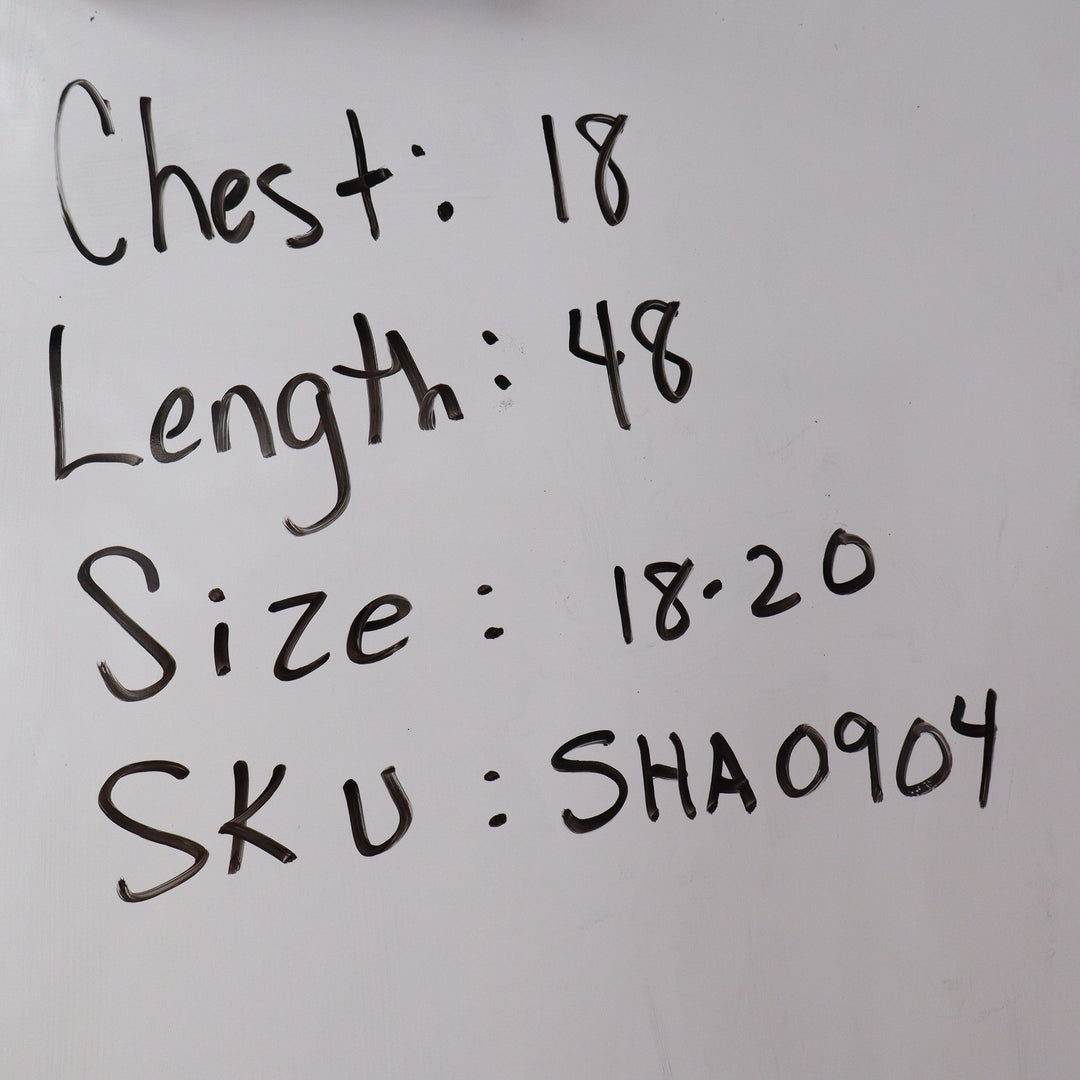 Chest: 18
Length: 48
Size: 18-20
SKU: SHA0904